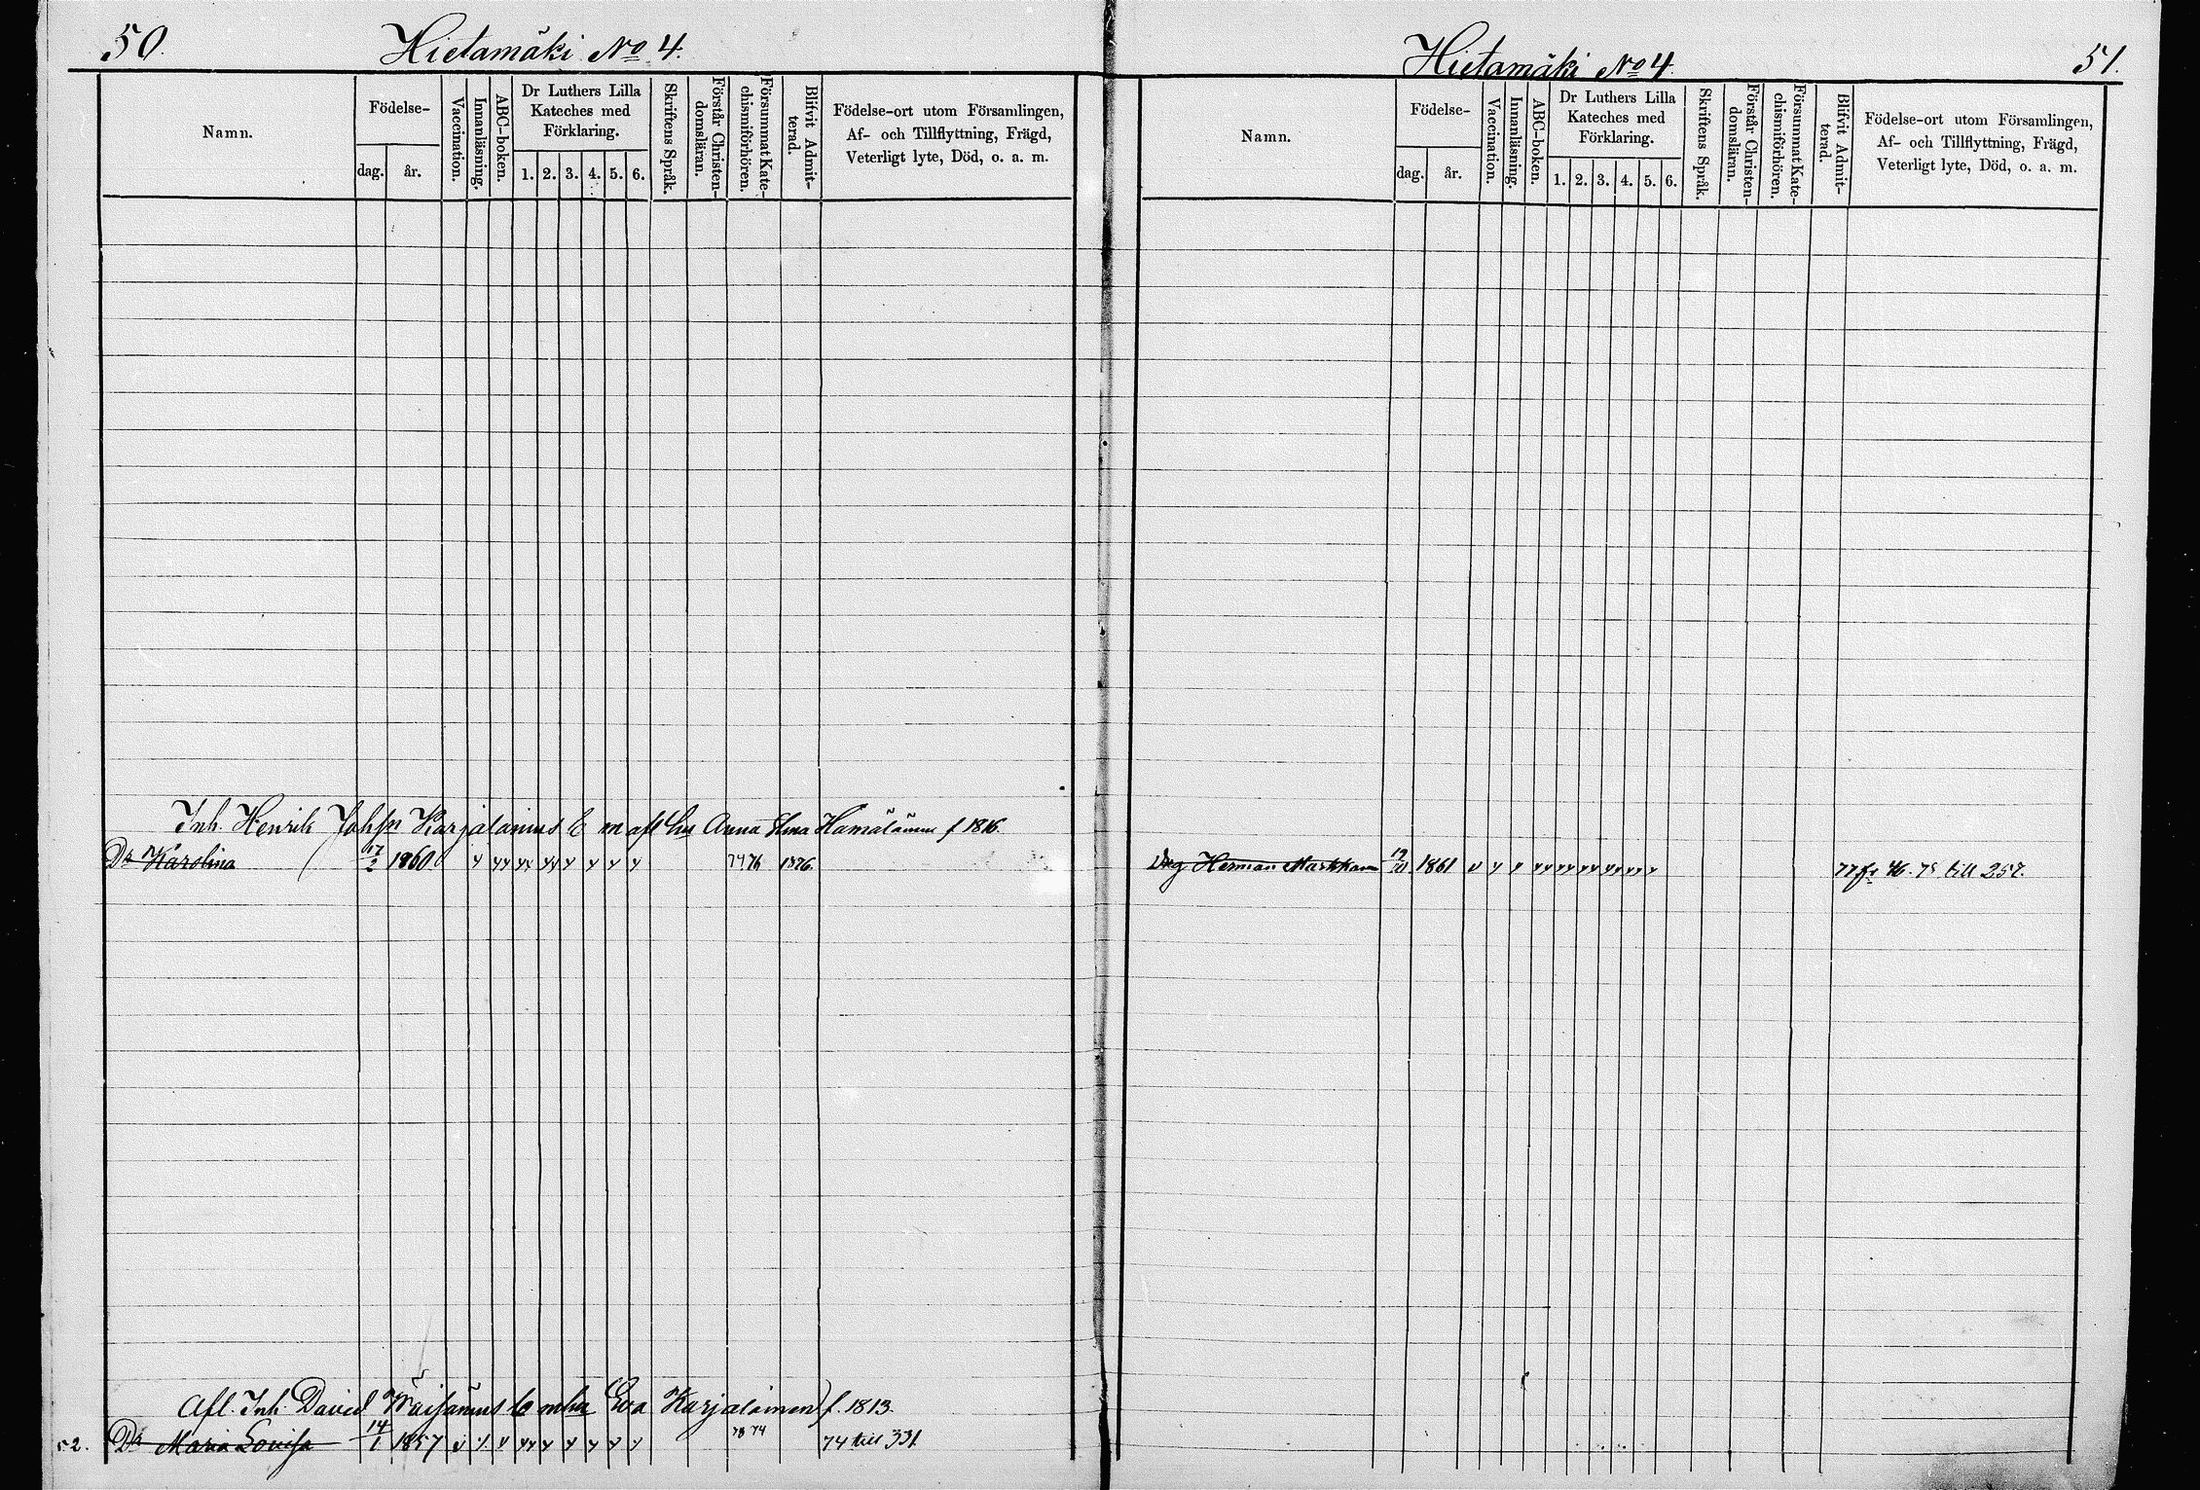 50. Hietamäki No 4.
Namn. Födelse- dag. år. Vaccination. Innanläsning. ABC-boken. Dr Luthers Lilla Kateches med Förklaring. 1. 2. 3. 4. 5. 6. Skriftens Språk. Förstår Christen-domsläran. Försummat Kate-chismiförhören. Blifvit Admit-terad. Födelse-ort utom Församlingen, Af- och Tillflyttning, Frägd, Veterligt lyte, Död, o. a. m.
Inh. Henrik Johsn Karjalainens E m afl hu Anna Hämäläinen f 1816.
Dr Karolina 17/2 1860 74 76 1876.
Afl. Inh. David Wäisänens Eva Karjalainen) f. 1813.
52. Dr Maria Lovisa 14/1 1857 73 74 74 till 331.
Hietamäki No 4. 51.
Namn. Födelse- dag. år. Vaccination. Innanläsning. ABC-boken. Dr Luthers Lilla Kateches med Förklaring. 1. 2. 3. 4. 5. 6. Skriftens Språk. Förstår Christen-domsläran. Försummat Kate-chismiförhören. Blifvit Admit-terad. Födelse-ort utom Församlingen, Af- och Tillflyttning, Frägd, Veterligt lyte, Död, o. a. m.
Drg Herman Markkan 1861 77 fr 46. 78 till 257.